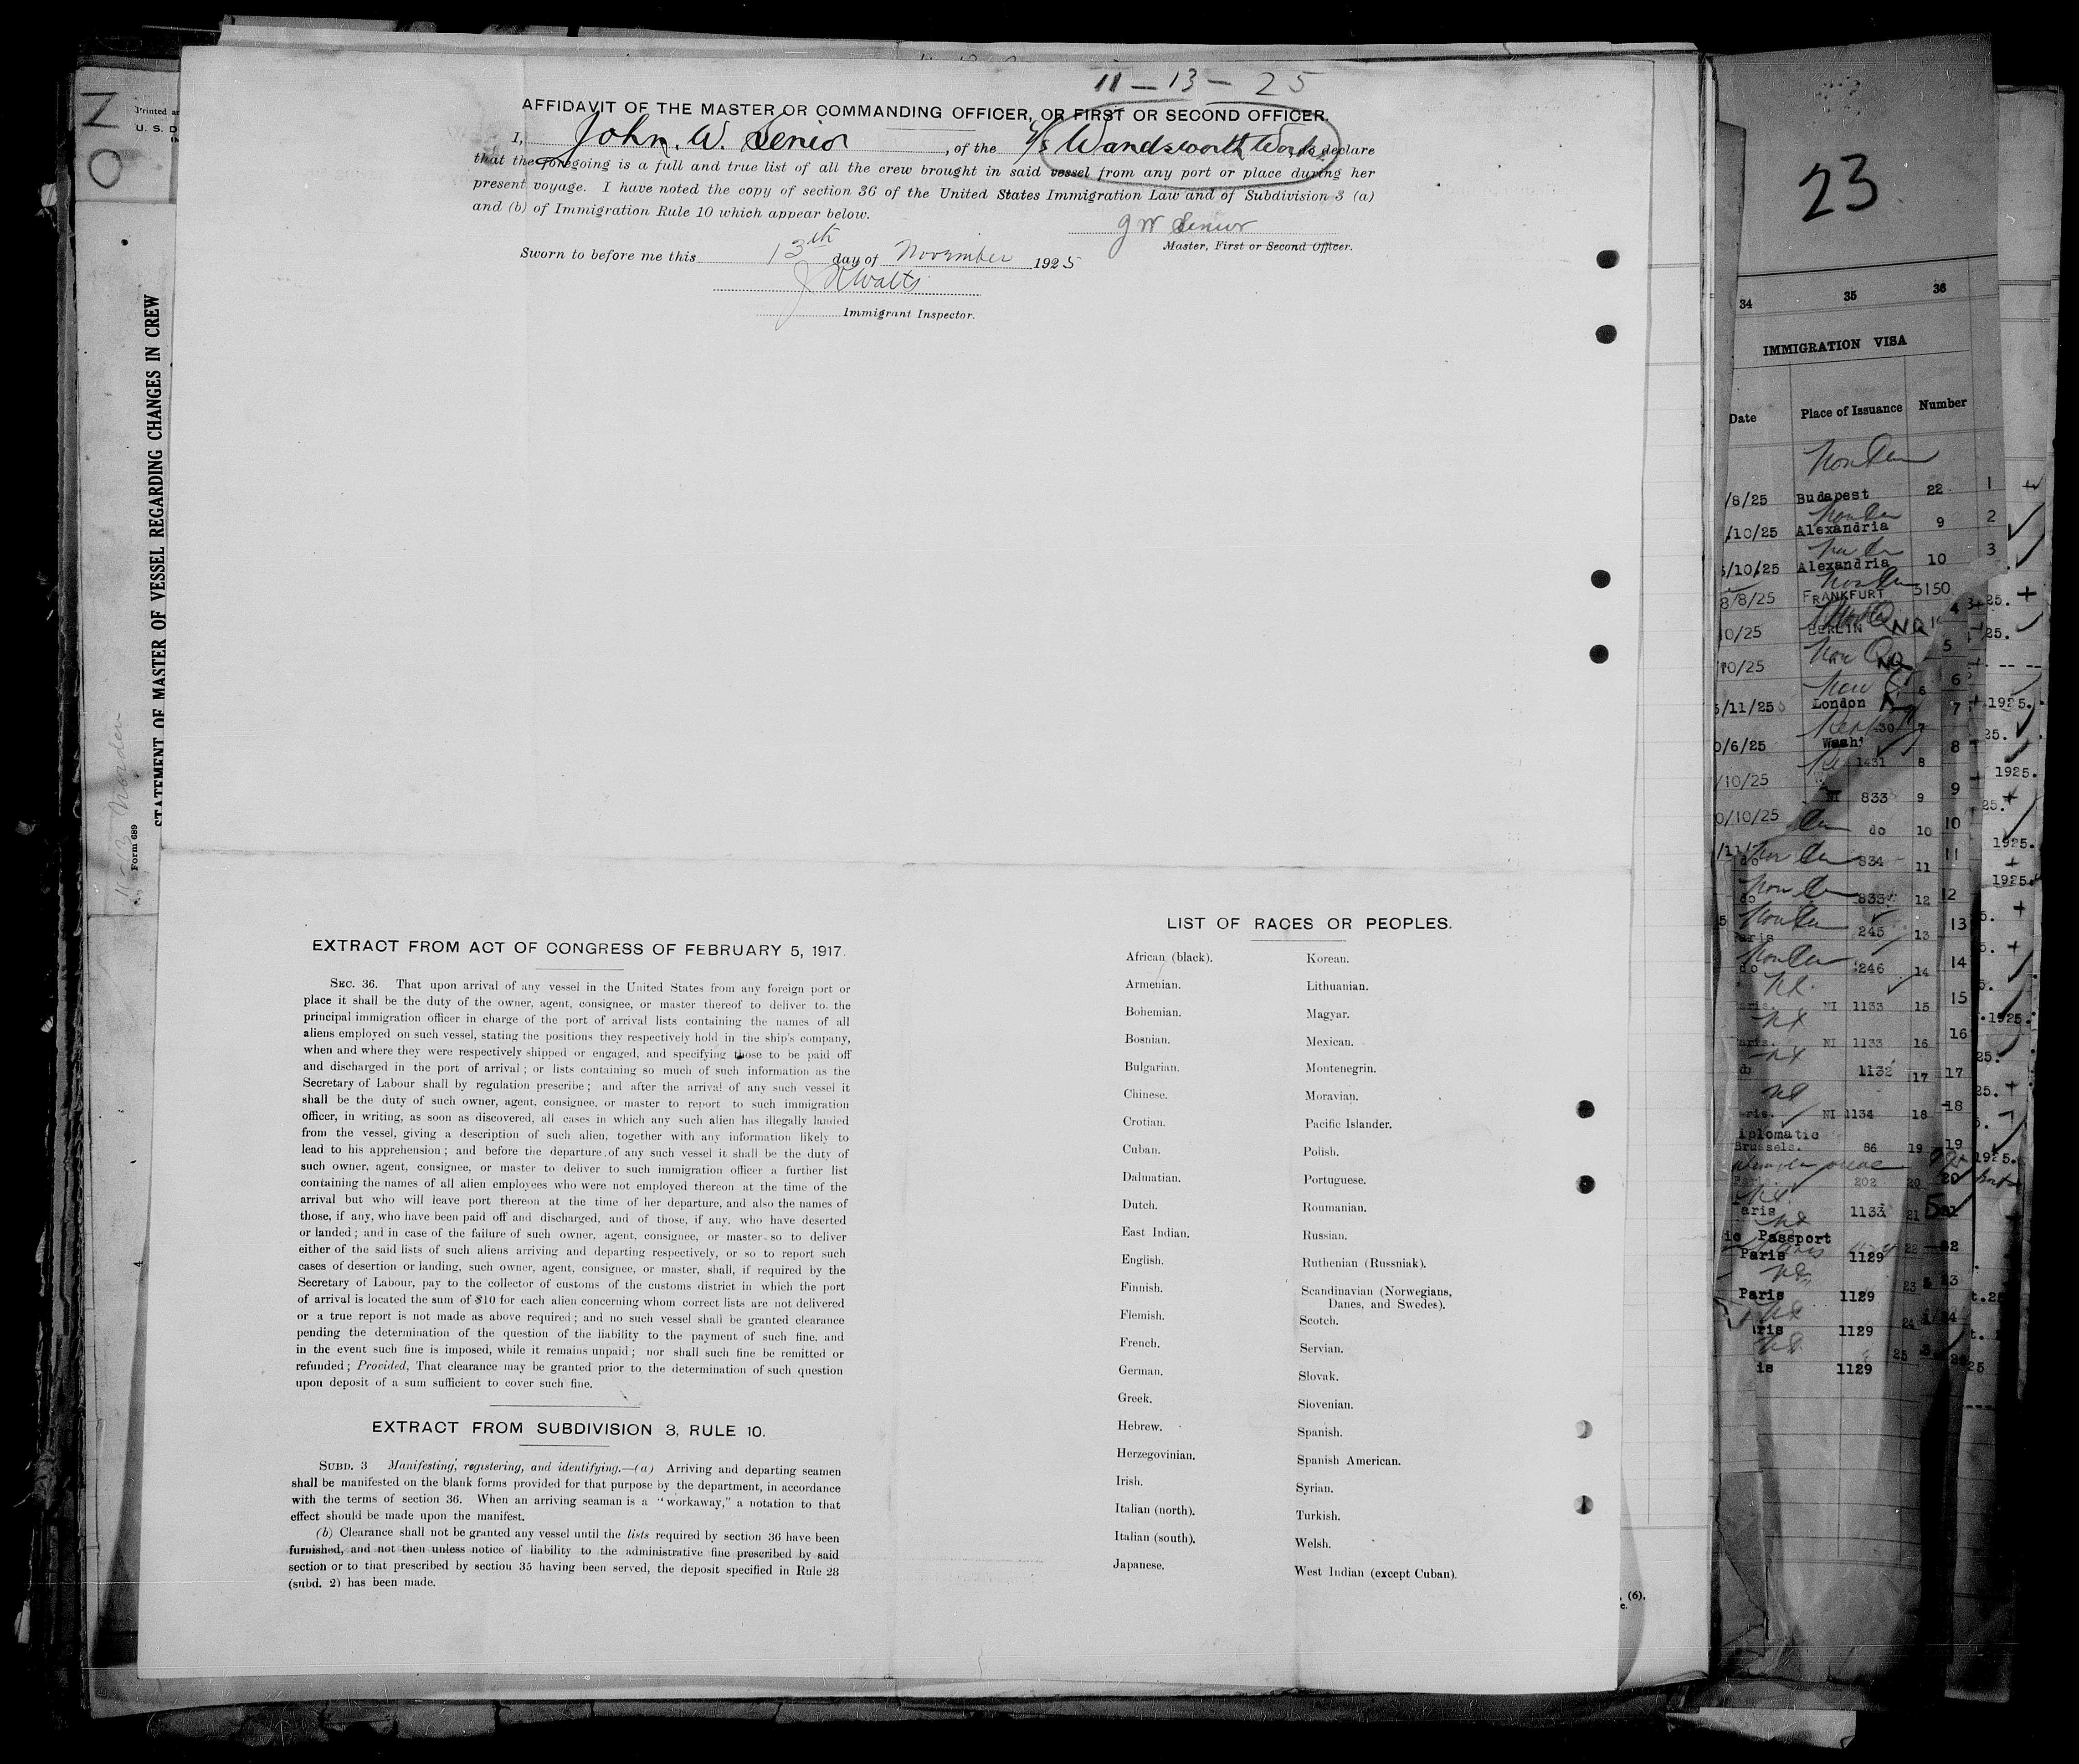 11 — 13 — 25
AFFIDAVIT OF THE MASTER OR COMMANDING OFFICER, OR FIRST OR SECOND OFFICER.
I, John. W. Senior, of the S/S Wandsworth Works, do declare
that the foregoing is a full and true list of all the crew brought in said vessel from any port or place during her
present voyage. I have noted the copy of section 36 of the United States Immigration Law and of Subdivision 3 (a)
and (b) of Immigration Rule 10 which appear below.
J W Senior
Master, First or Second Officer.
Sworn to before me this 13th day of November 1925
Watts
Immigrant Inspector.
EXTRACT FROM ACT OF CONGRESS OF FEBRUARY 5, 1917.
SEC. 36. That upon arrival of any vessel in the United States from any foreign port or
place it shall be the duty of the owner, agent, consignee, or master thereof to deliver to the
principal immigration officer in charge of the port of arrival lists containing the names of all
aliens employed on such vessel, stating the positions they respectively hold in the ship's company,
when and where they were respectively shipped or engaged, and specifying those to be paid off
and discharged in the port of arrival; or lists containing so much of such information as the
Secretary of Labour shall by regulation prescribe; and after the arrival of any such vessel it
shall be the duty of such owner, agent, consignee, or master to report to such immigration
officer, in writing, as soon as discovered, all cases in which any such alien has illegally landed
from the vessel, giving a description of such alien, together with any information likely to
lead to his apprehension; and before the departure of any such vessel it shall be the duty of
such owner, agent, consignee, or master to deliver to such immigration officer a further list
containing the names of all alien employees who were not employed thereon at the time of the
arrival but who will leave port thereon at the time of her departure, and also the names of
those, if any, who have been paid off and discharged, and of those, if any, who have deserted
or landed; and in case of the failure of such owner, agent, consignee, or master so to deliver
either of the said lists of such aliens arriving and departing respectively, or so to report such
cases of desertion or landing, such owner, agent, consignee, or master, shall, if required by the
Secretary of Labour, pay to the collector of customs of the customs district in which the port
of arrival is located the sum of $10 for each alien concerning whom correct lists are not delivered
or a true report is not made as above required; and no such vessel shall be granted clearance
pending the determination of the question of the liability to the payment of such fine, and
in the event such fine is imposed, while it remains unpaid; nor shall such fine be remitted or
refunded; Provided, That clearance may be granted prior to the determination of such question
upon deposit of a sum sufficient to cover such fine.
EXTRACT FROM SUBDIVISION 3, RULE 10.
SUBD. 3 Manifesting, registering, and identifying.—(a) Arriving and departing seamen
shall be manifested on the blank forms provided for that purpose by the department, in accordance
with the terms of section 36. When an arriving seaman is a "workaway," a notation to that
effect should be made upon the manifest.
(b) Clearance shall not be granted any vessel until the lists required by section 36 have been
furnished, and not then unless notice of liability to the administrative fine prescribed by said
section or to that prescribed by section 35 having been served, the deposit specified in Rule 28
(subd. 2) has been made.
LIST OF RACES OR PEOPLES.
African (black).
Armenian.
Bohemian.
Bosnian.
Bulgarian.
Chinese.
Crotian.
Cuban.
Dalmatian.
Dutch.
East Indian.
English.
Finnish.
Flemish.
French.
German.
Greek.
Hebrew.
Herzegovinian.
Irish.
Italian (north).
Italian (south).
Japanese.
Korean.
Lithuanian.
Magyar.
Mexican.
Montenegrin.
Moravian.
Pacific Islander.
Polish.
Portuguese.
Roumanian.
Russian.
Ruthenian (Russniak).
Scandinavian (Norwegians,
Danes, and Swedes).
Scotch.
Servian.
Slovak.
Slovenian.
Spanish.
Spanish American.
Syrian.
Turkish.
Welsh.
West Indian (except Cuban).
STATEMENT OF MASTER OF VESSEL REGARDING CHANGES IN CREW
Form 689
23
34 35 36
IMMIGRATION VISA
Date Place of Issuance Number
/8/25 Budapest 22 1
/10/25 Alexandria 9 2
/10/25 Alexandria 10 3
8/8/25 FRANKFURT 5150
0/25 BERLIN NQ
/10/25 NQ
/11/25 London
0/6/25 Wash'
/10/25 1431 8
NI 833 9
0/10/25 do 10
do 834 11
do 12
Paris 245 13
do 246 14
Paris. NI 1133 15
NI 1133 16
1132 17
NI 1134 18
Brussels. 86 19
Paris. 202 20
1133 21
Passport
Paris 1129
Paris 1129
1129
1129